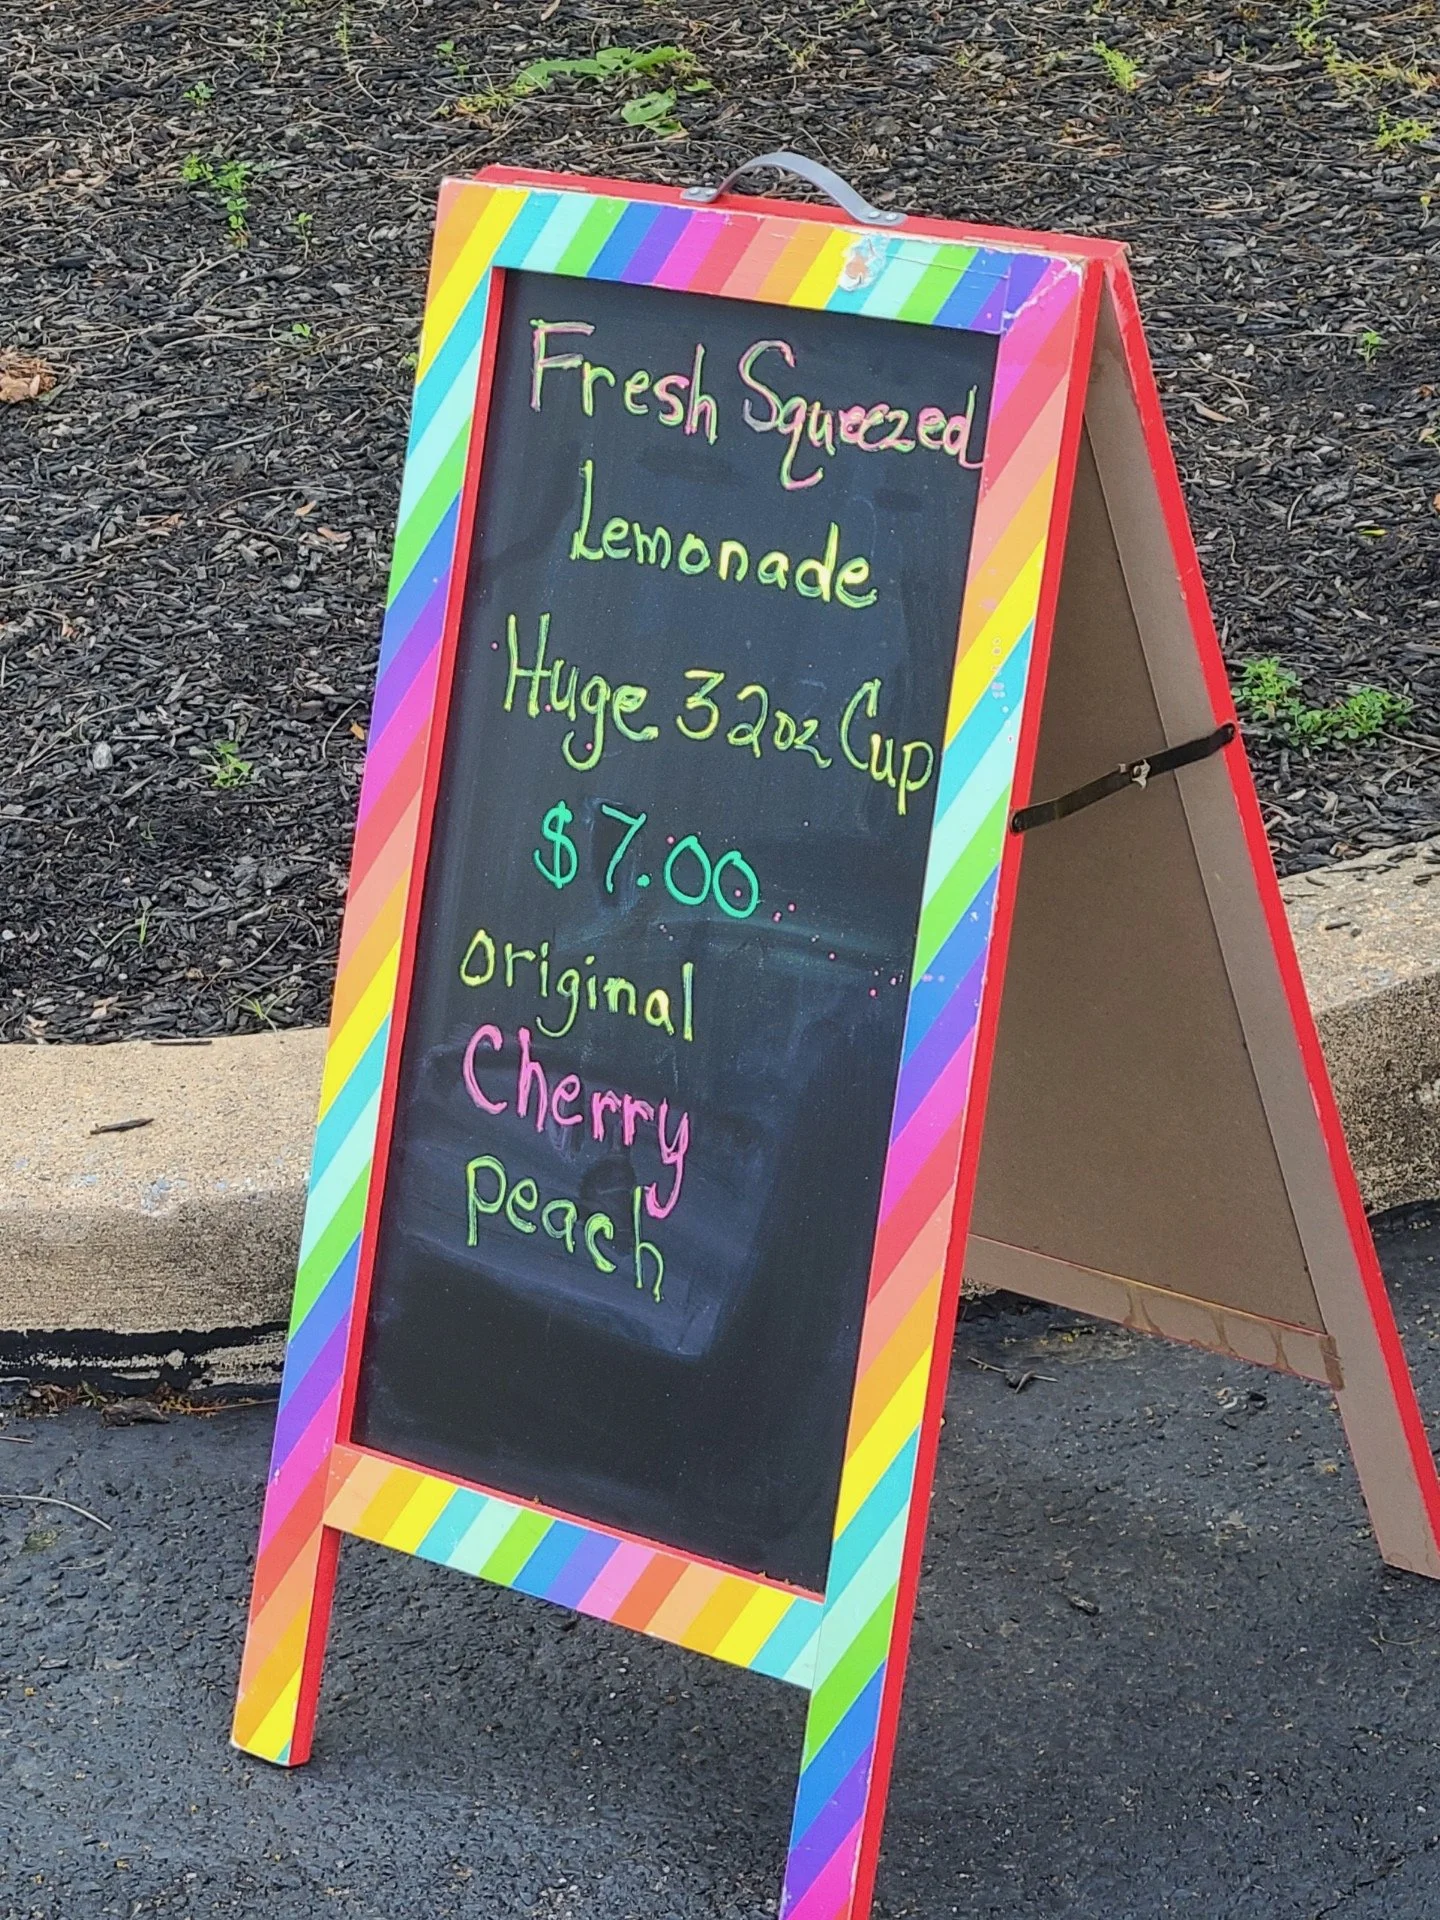 Fresh Squeezed
Lemonade
Huge 32oz Cup
$7.00
original
Cherry
peach